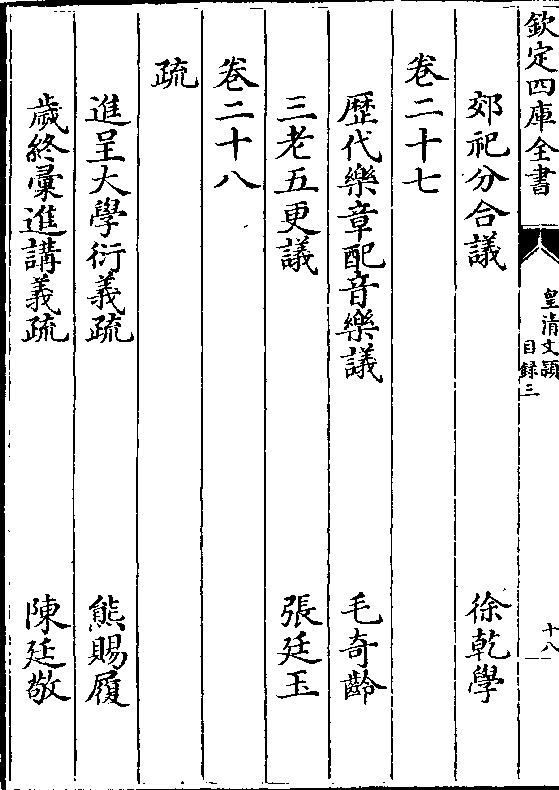 欽定四庫全書
皇清文穎
目錄三
十八
郊祀分合議 徐乾學
卷二十七
歴代樂章配音樂議 毛奇齡
三老五更議 張廷玉
卷二十八
疏
進呈大學衍義疏 熊賜履
歲終彙進講義疏 陳廷敬